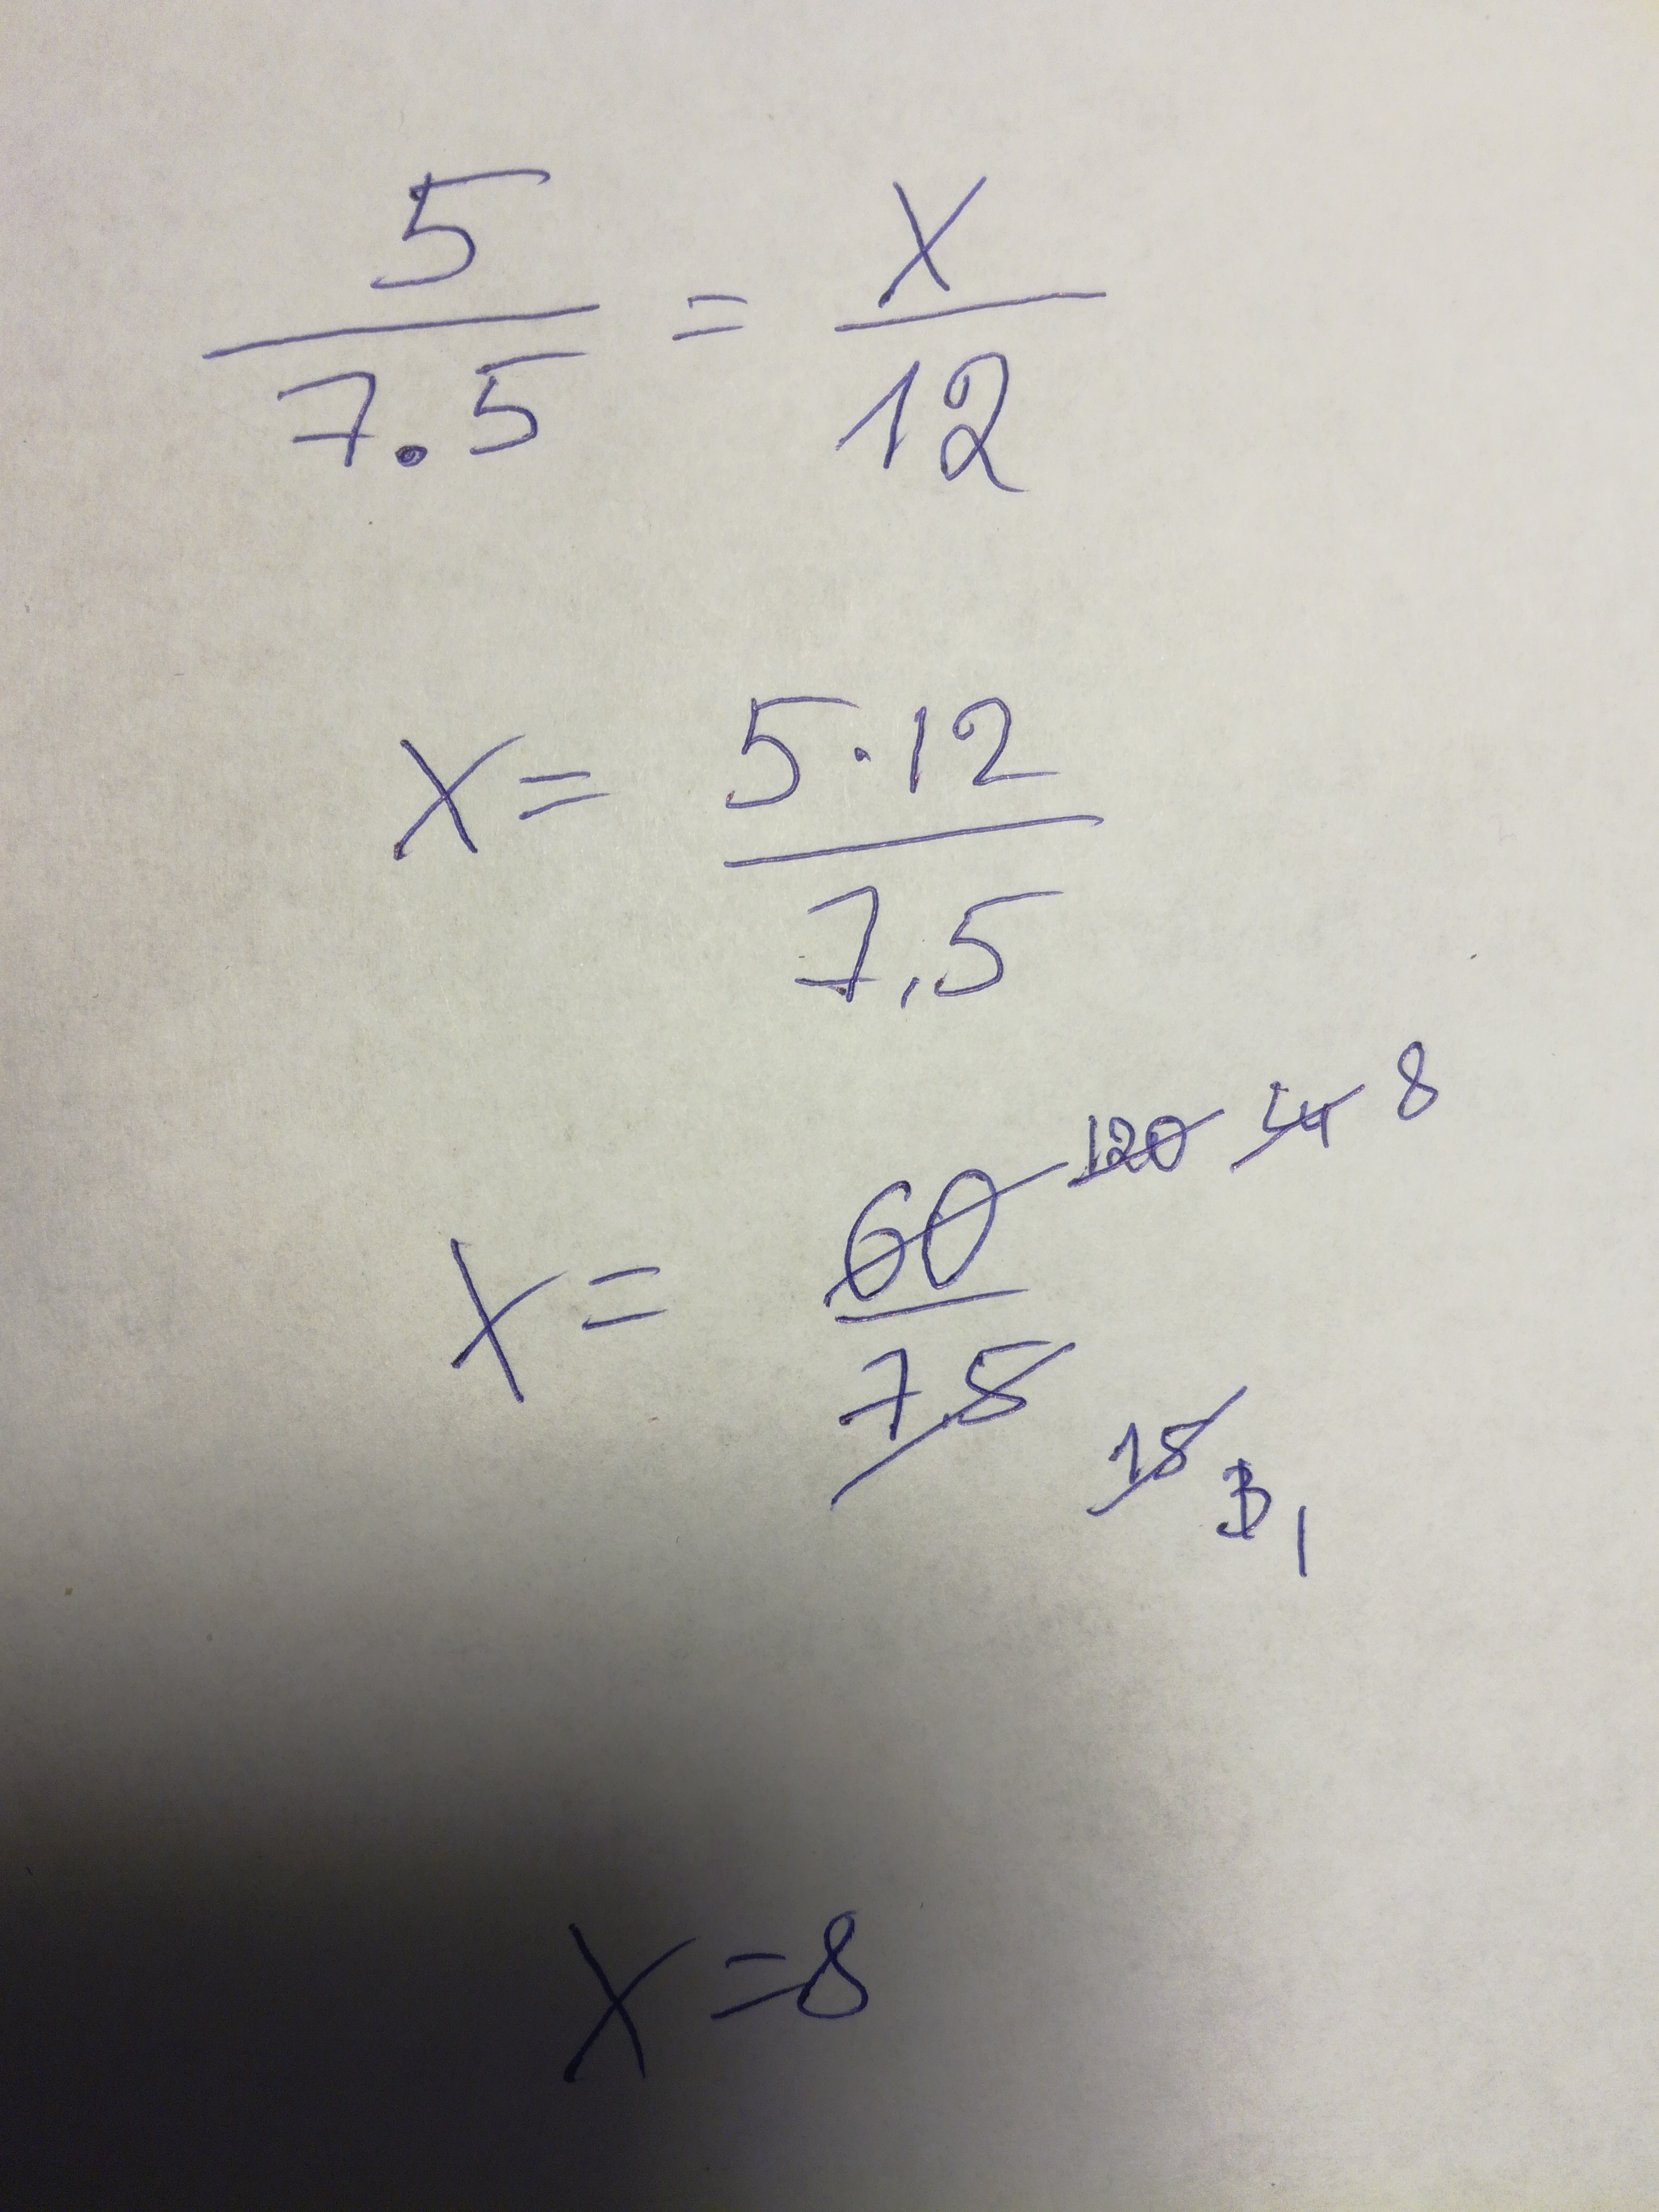 5/7.5 = x/12
x = 5·12/7,5
x = 60/7,5 120 8
15 3 1
x = 8